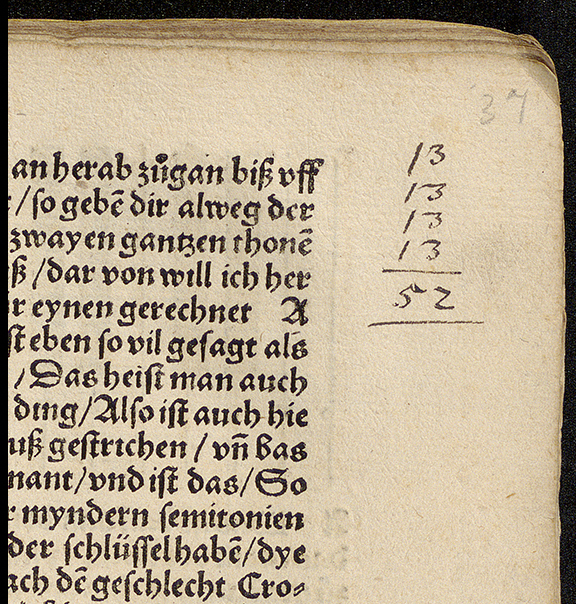 37
an herab zůgan biß vff
/so gebē dir alweg der
zwayen gantzen thonē
ß /dar von will ich her
r eynen gerechnet A
ſt eben ſo vil geſagt als
/Das heiſt man auch
ding/Alſo iſt auch hie
uß geſtrichen / vñ bas
nant/vnd iſt das/So
r myndern ſemitonien
der ſchlüſſel habē/dye
ach dē geſchlecht Cro⸗
13
13
13
13
52